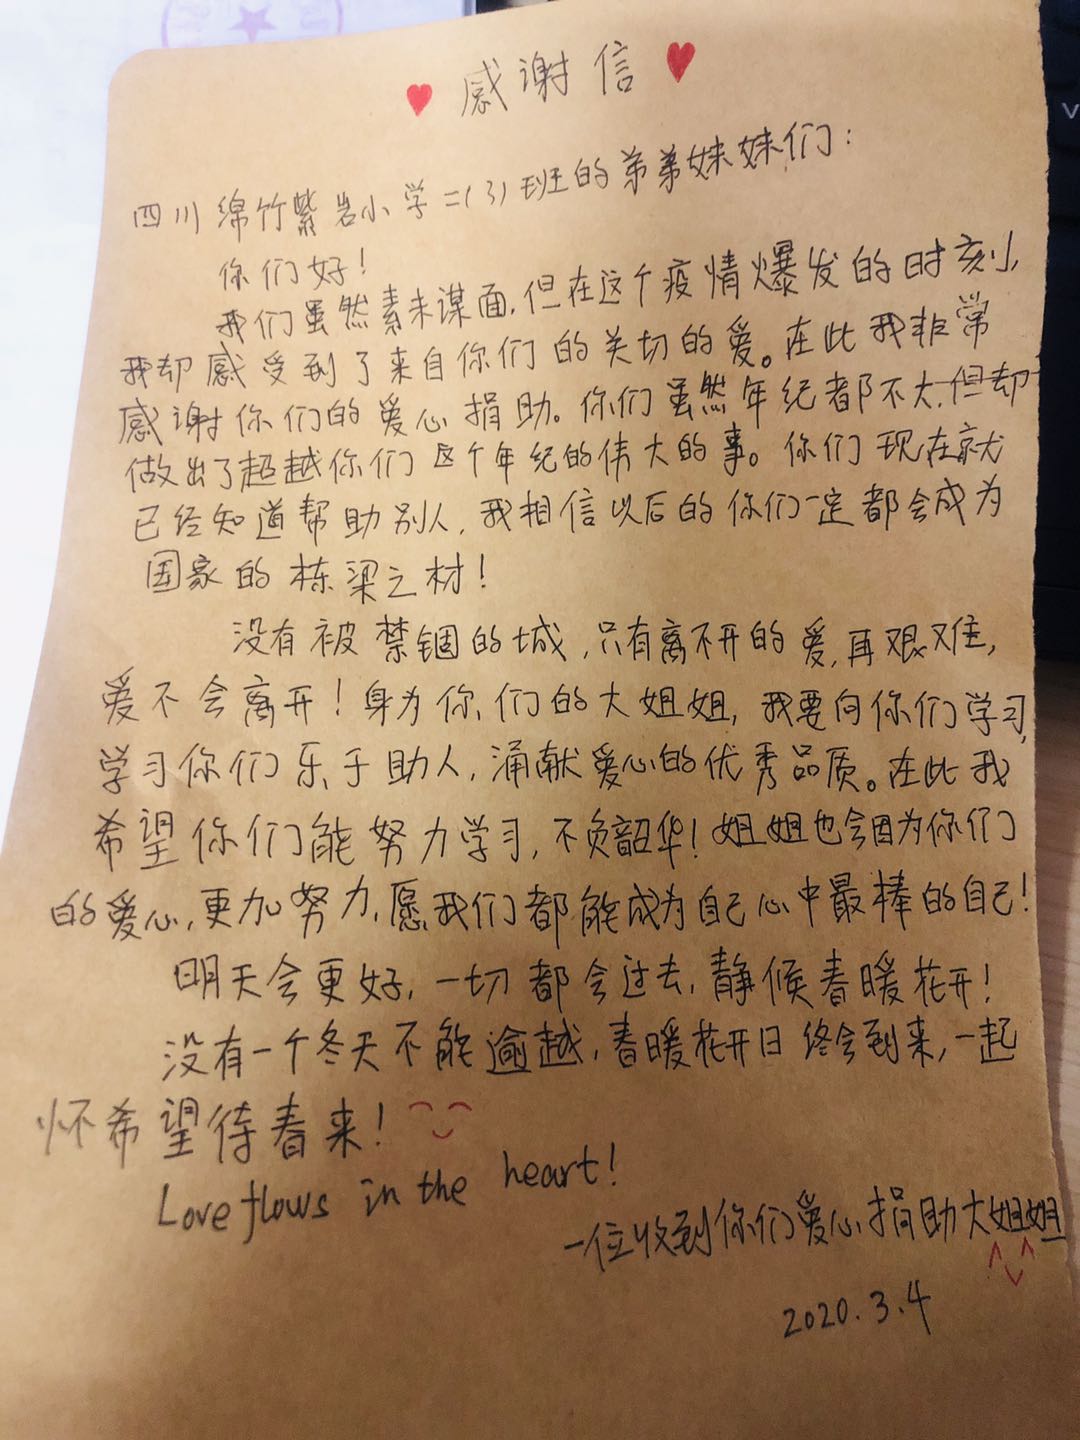 感谢信
四川绵竹紫岩小学二(3)班的弟弟妹妹们:
你们好!
我们虽然素未谋面,但在这个疫情爆发的时刻,
我却感受到了来自你们的关切的爱。在此我非常
感谢你们的爱心捐助。你们虽然年纪都不大,但却
做出了超越你们这个年纪的伟大的事。你们现在就
已经知道帮助别人,我相信以后的你们一定都会成为
国家的栋梁之材!
没有被禁锢的城,只有离不开的爱,再艰难,
爱不会离开!身为你们的大姐姐,我要向你们学习,
学习你们乐于助人,涌献爱心的优秀品质。在此我
希望你们能努力学习,不负韶华!姐姐也会因为你们
的爱心,更加努力,愿我们都能成为自己心中最棒的自己!
明天会更好,一切都会过去,静候春暖花开!
没有一个冬天不能逾越,春暖花开日终会到来,一起
怀希望待春来!
Love flows in the heart!
一位收到你们爱心捐助大姐姐
2020.3.4
V